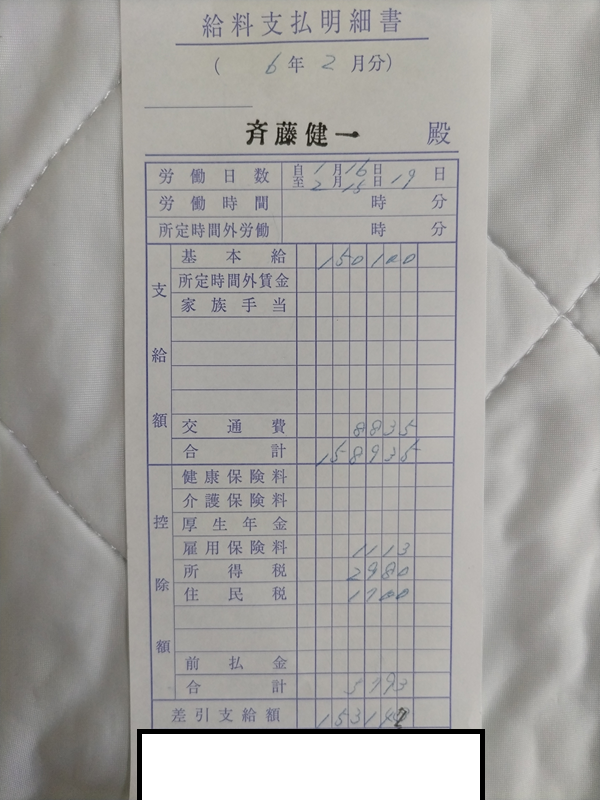 給料支払明細書
( 6年 2月分)
斉藤健一 殿
労働日数 自 1月16日 至 2月15日 19日
労働時間 時 分
所定時間外労働 時 分
支給額
基本給 150100
所定時間外賃金
家族手当
交通費 8835
合計 158935
控除額
健康保険料
介護保険料
厚生年金
雇用保険料 1113
所得税 2980
住民税 1700
前払金
合計 5793
差引支給額 153142